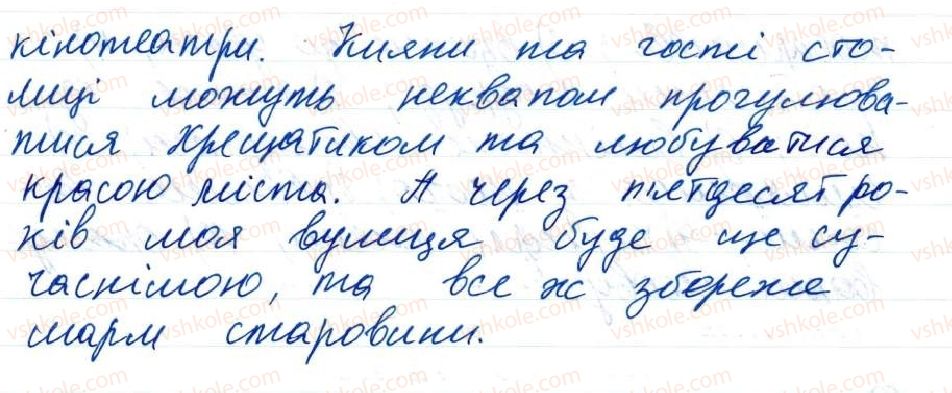 кінотеатри. Кияни та гості сто-
лиці можуть неквапом прогулюва-
тися Хрещатиком та любуватися
красою міста. А через п'ятдесят ро-
ків моя вулиця буде ще су-
часнішою, та все ж збереже
шарм старовини.